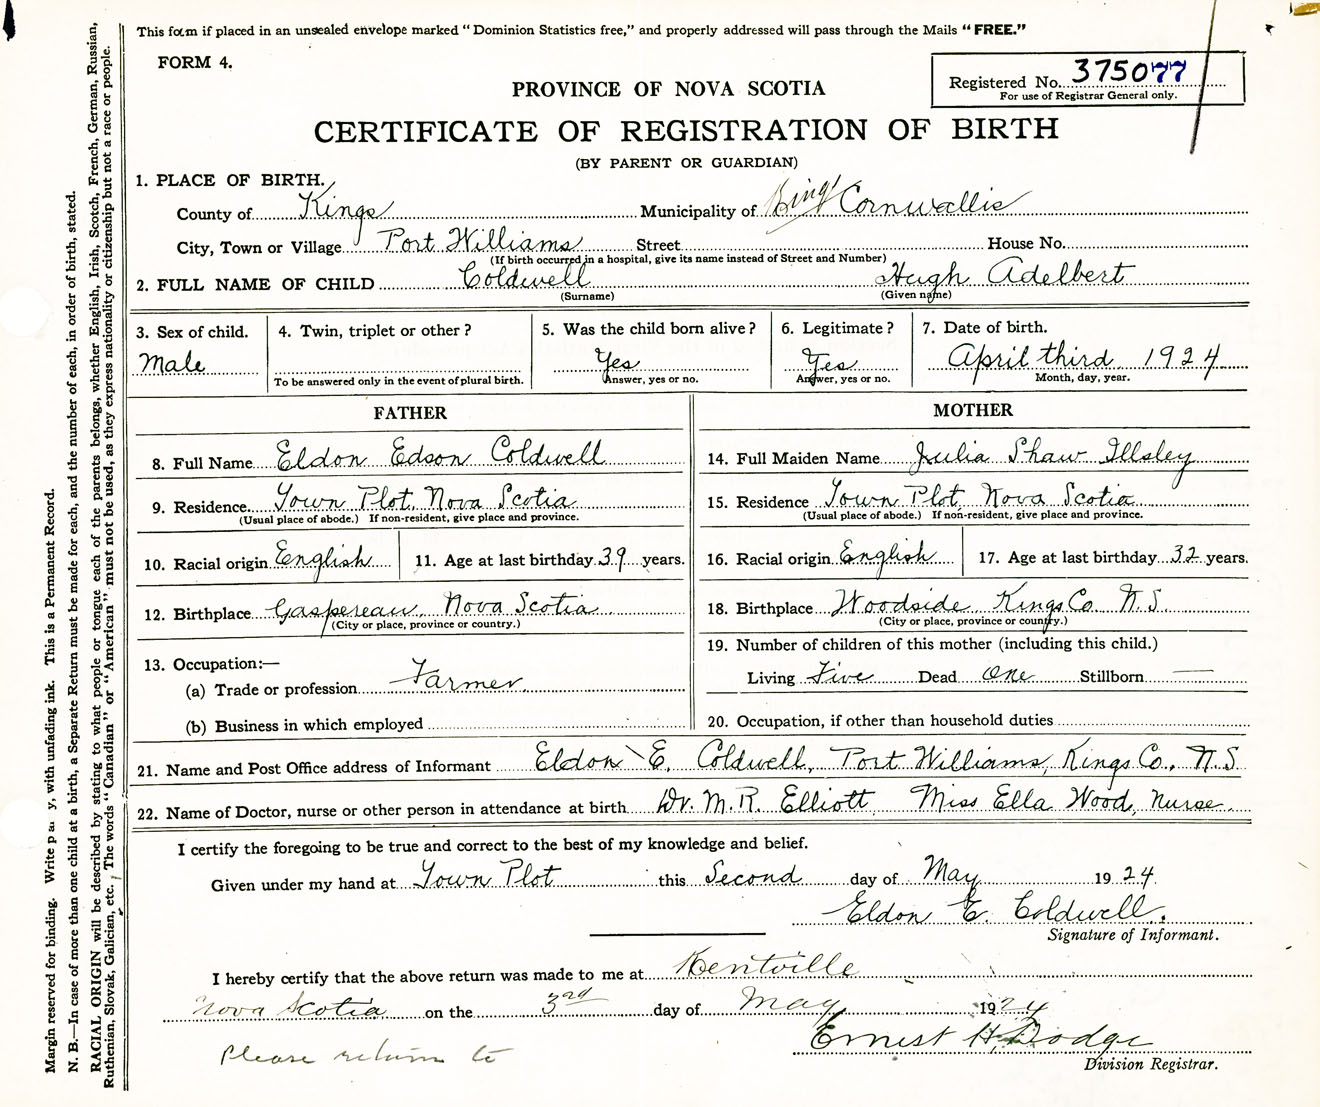 This form if placed in an unsealed envelope marked “Dominion Statistics free,” and properly addressed will pass through the Mails “FREE.”
FORM 4.
Registered No. 375077
For use of Registrar General only.
PROVINCE OF NOVA SCOTIA
CERTIFICATE OF REGISTRATION OF BIRTH
(BY PARENT OR GUARDIAN)
1. PLACE OF BIRTH.
County of Kings Municipality of King's Cornwallis
City, Town or Village Port Williams Street House No.
(If birth occurred in a hospital, give its name instead of Street and Number)
2. FULL NAME OF CHILD Coldwell Hugh Adelbert
(Surname) (Given name)
3. Sex of child. 4. Twin, triplet or other? 5. Was the child born alive? 6. Legitimate? 7. Date of birth.
Male Yes Yes April third 1924
To be answered only in the event of plural birth. Answer, yes or no. Answer, yes or no. Month, day, year.
FATHER
8. Full Name Eldon Edson Coldwell
9. Residence. Town Plot, Nova Scotia
(Usual place of abode.) If non-resident, give place and province.
10. Racial origin English 11. Age at last birthday 39 years.
12. Birthplace Gaspereau, Nova Scotia
(City or place, province or country.)
13. Occupation:—
(a) Trade or profession Farmer
(b) Business in which employed
MOTHER
14. Full Maiden Name Julia Shaw Illsley
15. Residence Town Plot, Nova Scotia
(Usual place of abode.) If non-resident, give place and province.
16. Racial origin English 17. Age at last birthday 32 years.
18. Birthplace Woodside Kings Co. N.S.
(City or place, province or country.)
19. Number of children of this mother (including this child.)
Living Five Dead One Stillborn —
20. Occupation, if other than household duties
21. Name and Post Office address of Informant Eldon E. Coldwell, Port Williams, Kings Co., N.S
22. Name of Doctor, nurse or other person in attendance at birth Dr. M.R. Elliott Miss Ella Wood, nurse
I certify the foregoing to be true and correct to the best of my knowledge and belief.
Given under my hand at Town Plot this Second day of May 1924
Eldon E. Coldwell.
Signature of Informant.
I hereby certify that the above return was made to me at Kentville
Nova Scotia on the 3rd day of May 1924
Ernest H. Dodge
Division Registrar.
Please return to
Margin reserved for binding. Write with unfading ink. This is a Permanent Record.
N. B.—In case of more than one child at a birth, a Separate Return must be made for each, and the number of each, in order of birth, stated.
RACIAL ORIGIN will be described by stating to what people or tongue each of the parents belongs, whether English, Irish, Scotch, French, German, Russian,
Ruthenian, Slovak, Galician, etc. The words “Canadian” or “American” must not be used, as they express nationality or citizenship but not a race or people.